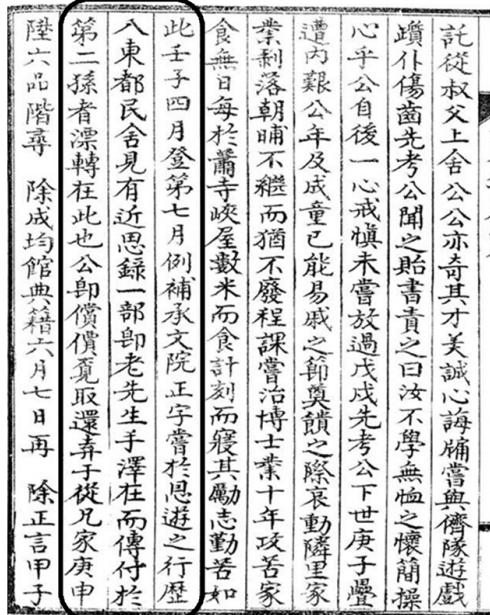 託從叔父上舍公公亦奇其才美誠心誨牖嘗與儕隊遊戲
躓仆傷齒先考公聞之貽書責之曰汝不學無恤之懷簡操
心乎公自後一心戒愼未嘗放過戊戌先考公下世庚子疊
遭內艱公年及成童已能易戚之節奠饋之際哀動隣里家
業剝落朝晡不繼而猶不廢程課嘗治博士業十年攻苦家
食無日每於蕭寺峽屋數米而食計刻而寢其勵志勤苦如
此壬子四月登第七月例補承文院正字嘗於恩遊之行歷
八東都民舍見有近思錄一部卽老先生手澤在而傳付於
第二孫者漂轉在此也公卽償價覓取還弆于從兄家庚申
陞六品階尋 除成均館典籍六月七日再 除正言甲子